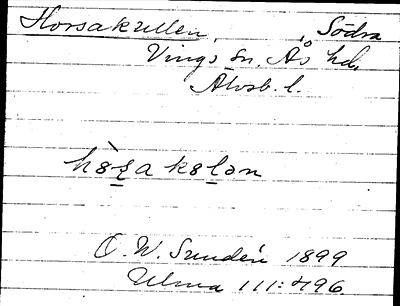 Horsakullen, , Södra
Vings sn. Ås hd.
Älvsb. l.
O. W. Sundén 1899
Ulma 111:496